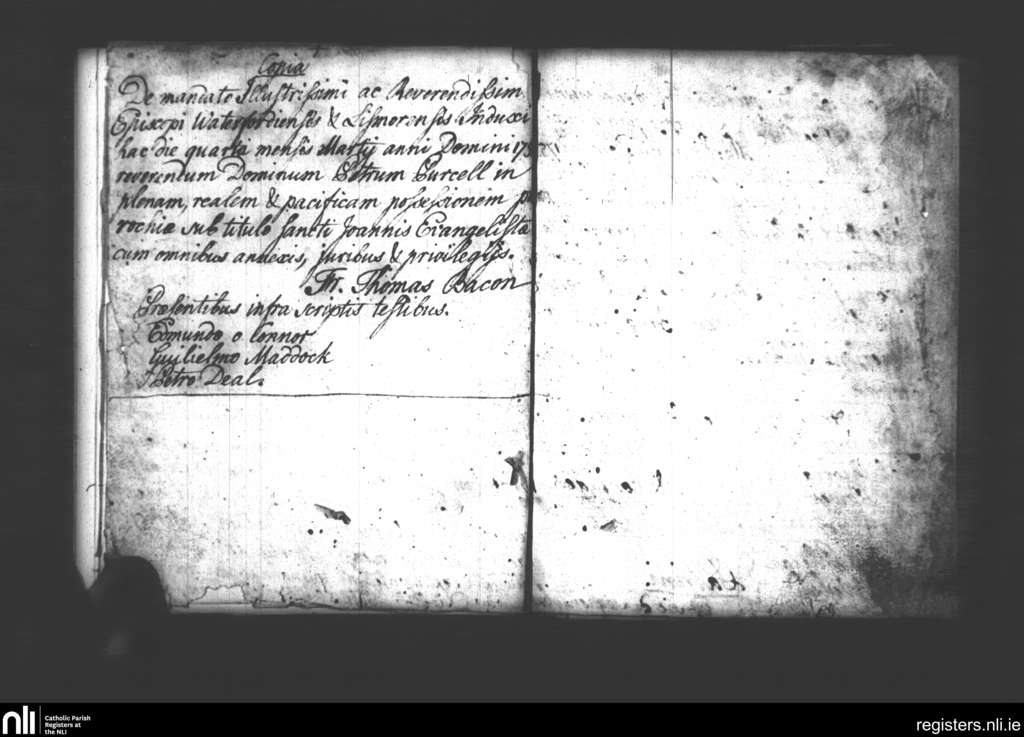 Copia
De mandato Illustrissimi ac Reverendissim
Episcopi Waterfordiensis & Lismorensis Induxi
hac die quarta mensis Martij anni Domini 175
reverendum Dominum Petrum Purcell in
plenam, realem & pacificam possessionem pa
rochiæ sub titulo sancti Joannis Evangelistæ
cum omnibus annexis, juribus & privilegijs.
Fr. Thomas Bacon
Præsentibus infra scriptis testibus.
Edmundo o Connor
Guilielmo Maddock
Petro Deal.
nli
Catholic Parish
Registers at
the NLI
registers.nli.ie